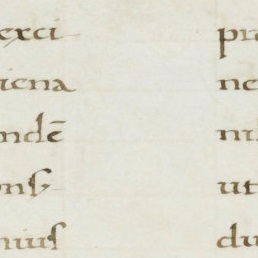 exci
iena
ndē
ons
nius
pr
ne
ni
ut
du